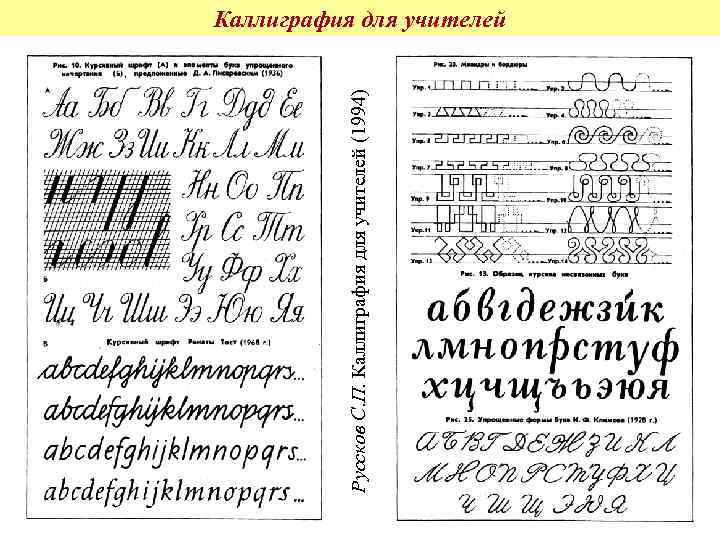 Каллиграфия для учителей
Рис. 10. Курсивный шрифт (А) и элементы букв упрощенного
начертания (Б), предложенные Д. А. Писаревским (1936)
А
Аа Бб Вв Гг Ддд Ее
Жж Зз Ии Кк Лл Мм
Нн Оо Пп
Рр Сс Тт
Уу Фф Хх
Б
Цц Чч Шш Ээ Юю Яя
В
Курсивный шрифт Ренаты Тост (1968 г.)
abcdefghijklmnopqrs...
abcdefghijklmnopqrs...
abcdefghijklmnopqrs...
abcdefghijklmnopqrs...
Руссков С.П. Каллиграфия для учителей (1994)
Рис. 23. Меандры и бордюры
Упр. 1
Упр. 2
Упр. 3
Упр. 4
Упр. 5
Упр. 6
Упр. 7
Упр. 8
Упр. 9
Упр. 10
Упр. 11
Упр. 12
Упр. 13
Рис. 13. Образец курсива несвязанных букв
абвгдежзийк
лмнопрстуф
хцчщъьэюя
Рис. 25. Упрощенные формы букв И. Ф. Климова (1928 г.)
АБВГДЕЖЗИКЛ
МНОПРСТУФХЦ
Ч Ш Щ Э Ю Я